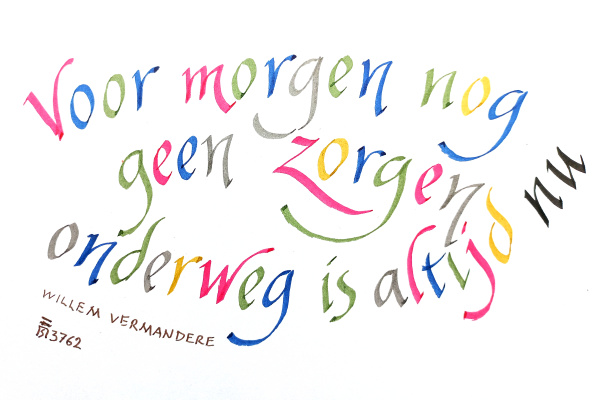 Voor morgen nog
geen zorgen
onderweg is altijd nu
WILLEM VERMANDERE
3762